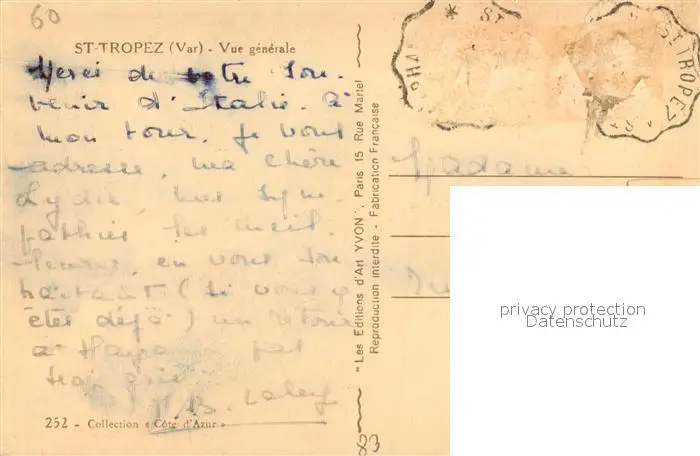 60
ST-TROPEZ (Var) - Vue générale
Merci de votre Sou-
venir d'Italie. à
mon tour, je vous
adresse, ma chère
Lydie, mes sym-
pathies les meil-
leures, en vous sou
haitant (si vous y
êtes déjà) un
à pas
trop
252 - Collection « Côte d'Azur »
"Les Editions d'Art YVON". Paris 15 Rue Martel
Reproduction interdite - Fabrication Française
ST
ST TROPEZ
Madame
privacy protection
Datenschutz
83